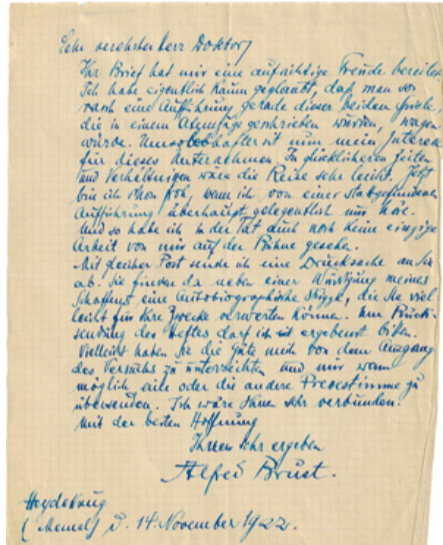 Sehr verehrter Herr Doktor,
Ihr Brief hat mir eine aufrichtige Freude bereitet.
Ich habe eigentlich kaum geglaubt, daß man so
rasch eine Aufführung gerade dieser beiden Spiele,
die in einem Atemzuge geschrieben wurden, wagen
würde. Umso lebhafter ist nun mein Interesse
für dieses Unternehmen. In glücklicheren Zeiten
und Verhältnissen wäre die Reise sehr leicht. Jetzt
bin ich schon froh, wenn ich von einer stattgefundenen
Aufführung überhaupt gelegentlich nur höre.
Und so habe ich in der Tat auch noch keine einzige
Arbeit von mir auf der Bühne gesehen.
Mit gleicher Post sende ich eine Drucksache an Sie
ab. Sie finden da neben einer Würdigung meines
Schaffens eine Autobiographische Skizze, die Sie viel
leicht für Ihre Zwecke verwerten können. Um Rück-
sendung des Heftes darf ich ergebenst bitten.
Vielleicht haben Sie die Güte mich von dem Ausgang
des Versuchs zu unterrichten und mir wenn
möglich eine oder die andere Pressestimme zu
übersenden. Ich wäre Ihnen sehr verbunden.
Mit der besten Hoffnung
Ihnen sehr ergeben
Alfred Brust.
Heydekrug
(Memel) d. 14. November 1922.